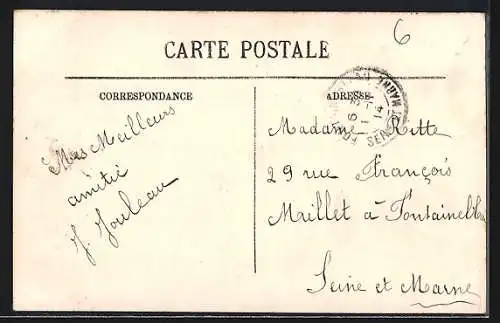 6
CARTE POSTALE
CORRESPONDANCE
ADRESSE
Mes Meilleurs
amitié
J. Jouleau
Madame Rette
29 rue François
Maillet à Fontainebleau
Seine et Marne